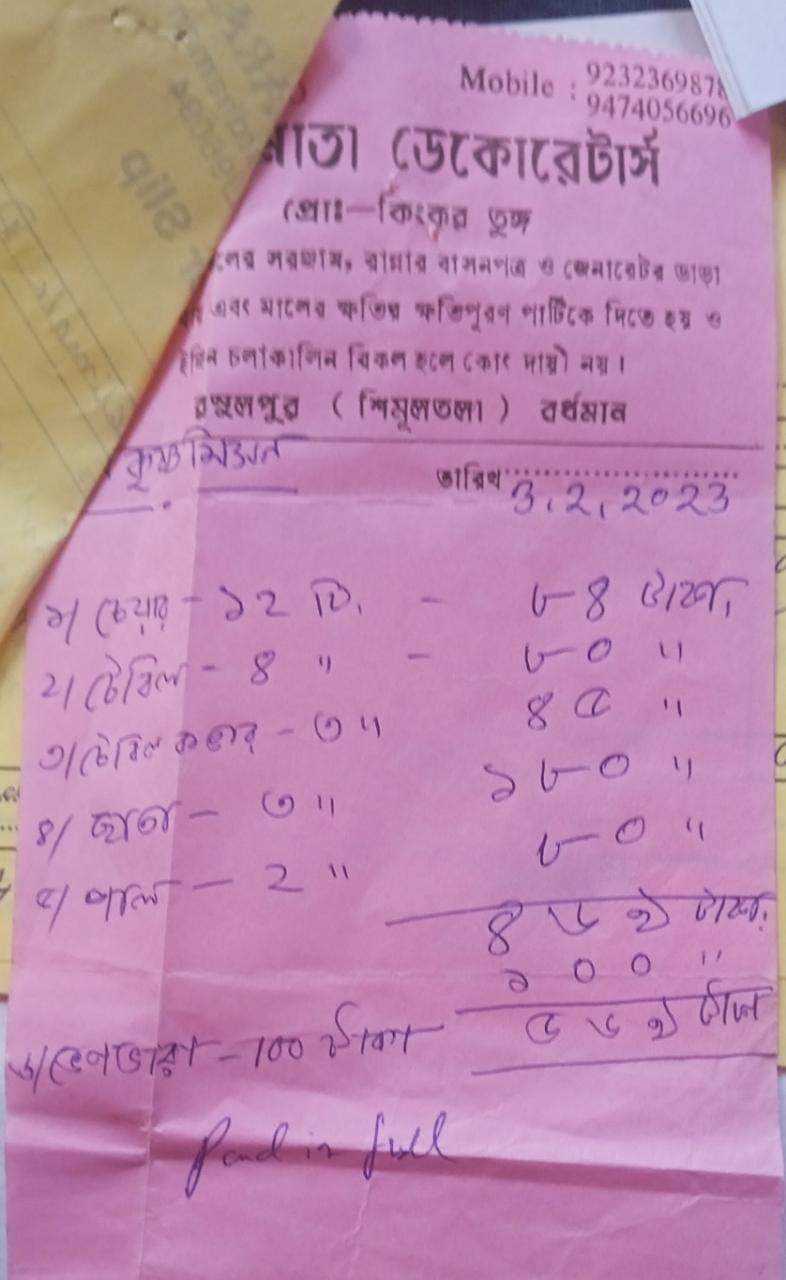 Mobile : 9232369878
9474056696
মাতা ডেকোরেটার্স
প্রোঃ—কিংকর তুঙ্গ
লের সরঞ্জাম, রান্নার বাসনপত্র ও জেনারেটর ভাড়া
এবং মালের ক্ষতির ক্ষতিপূরণ পার্টিকে দিতে হয় ও
চলাকালিন বিকল হলে কোং দায়ী নয়।
রসুলপুর ( শিমুলতলা ) বর্ধমান
তারিখ 3.2.2023
১/ চেয়ার - ১২ টি. - ৮৪ টাকা,
২/ টেবিল - ৪ " - ৮০ "
৩/ টেবিল কভার - ৩ " ৪৫ "
৪/ ছাতা - ৩ " ১৮০ "
৫/ - ২ " ৮০ "
৪৬৯ টাকা,
১০০ "
৬/ - 100 টাকা ৫৬৯ টাকা
Paid in full